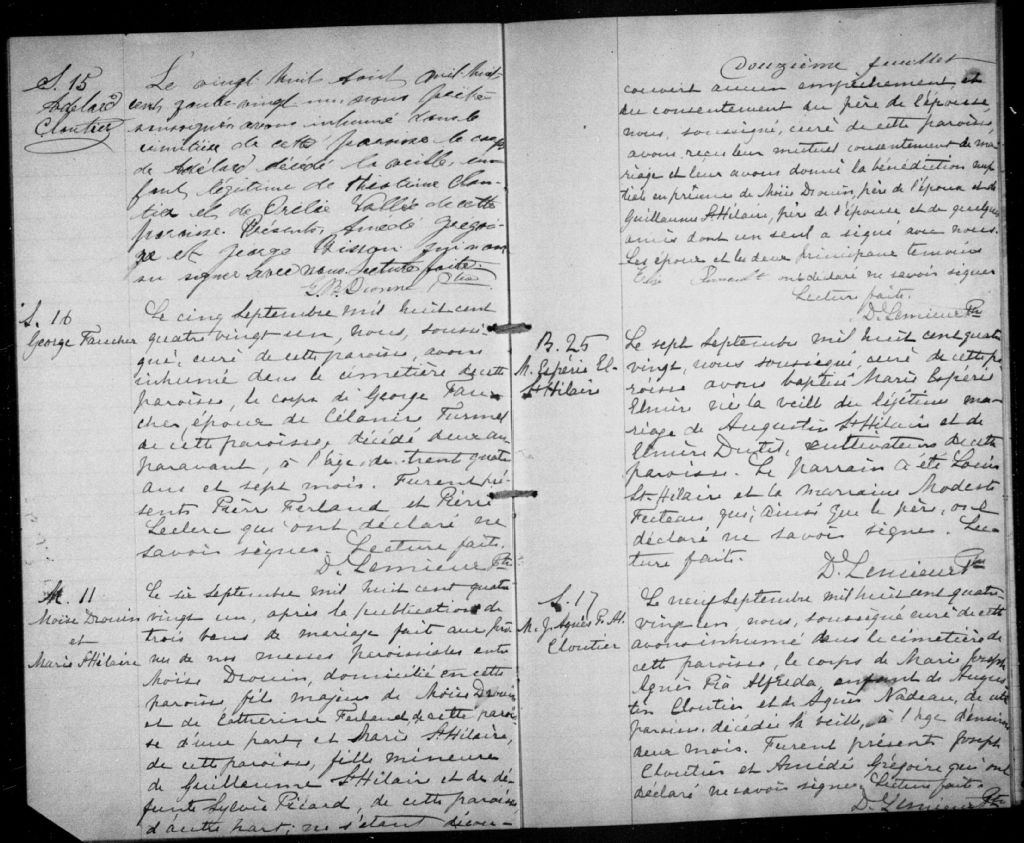 S. 15
Adélard
Cloutier
Le vingt huit Août mil huit
cent quatre-vingt un, nous prêtre
soussigné avons inhumé dans le
cimetière de cette paroisse le corps
de Adélard décédé la veille, en
fant légitime de Théotime Clou-
tier et de Orelie Vallée de cette
paroisse. Présents Amédé Grégoi-
re et George Bisson qui n'ont
su signer avec nous. Lecture faite.
G. B. Dionne Ptre
S. 16
George Faucher
Le cinq Septembre mil huit cent
quatre vingt un, nous, soussi
gné, curé de cette paroisse, avons
inhumé dans le cimetière de cette
paroisse, le corps de George Fau-
cher, époux de Célanire Turmel
de cette paroisse, décédé deux au
paravant, à l'âge de trent quatre
ans et sept mois. Furent pré-
sents Pierr Ferland et Pierre
Leclerc qui ont déclaré ne
savoir signer. Lecture faite.
D. Lemieux Ptre
M. 11
Moïse Drouin
et
Marie St Hilaire
Le six septembre mil huit cent quatre
vingt un, après la publication de
trois bans de mariage fait aux prô
nes de nos messes paroissiales entre
Moïse Drouin, domicilié en cette
paroisse fils majeur de Moïse Drouin
et de Catherine Ferland de cette parois
se d'une part, et Marie St Hilaire,
de cette paroisse, fille mineure
de Guillaume St Hilair et de dé
funte Sylvie Picard, de cette paroisse
d'autre part; ne s'étant décou-
Douzième feuillet
couvert aucun empêchement, et
du consentement du père de l'épouse,
nous, soussigné, curé de cette paroisse,
avons reçu leur mutuel consentement de ma
riage et leur avons donné la bénédiction nup
tiale en présence de Moïse Drouin, père de l'époux et de
Guillaume St Hilair, père de l'épouse et de quelques
amis dont un seul a signé avec nous.
Les époux et les deux principaux temoins
ont déclaré ne savoir signer
Lecture faite.
D. Lemieux Ptre
B. 25
M. Espérie El-
St Hilair
Le sept Septembre mil huit cent quatre
vingt, nous soussigné, curé de cette pa
roisse avons baptisé Marie Espérie
Elmire né la veille du légitime ma-
riage de Augustin St Hilair et de
Elmire Dutil, cultivateur de cette
paroisse. Le parrain a été Louis
St-Hilaire et la marraine Modeste
Feuteau, qui, ainsi que le père, ont
déclaré ne savoir signer. Lec-
ture faite.
D. Lemieux Ptre
S. 17
M. J. Agnès P. Al.
Cloutier
Le neuf Septembre mil huit cent quatre
vingt un nous, soussigné curé de cette
avons inhumé dans le cimetière de
cette paroisse, le corps de Marie Joseph
Agnès Pia Alfreda, enfant de Augus
tin Cloutier et de Agnès Nadeau, de cette
paroisse, décédée la veille, à l'âge d'environ
deux mois. Furent présents Joseph
Cloutier et Amédé Grégoire qui ont
déclaré ne savoir signer. Lecture faite.
D. Lemieux Ptre